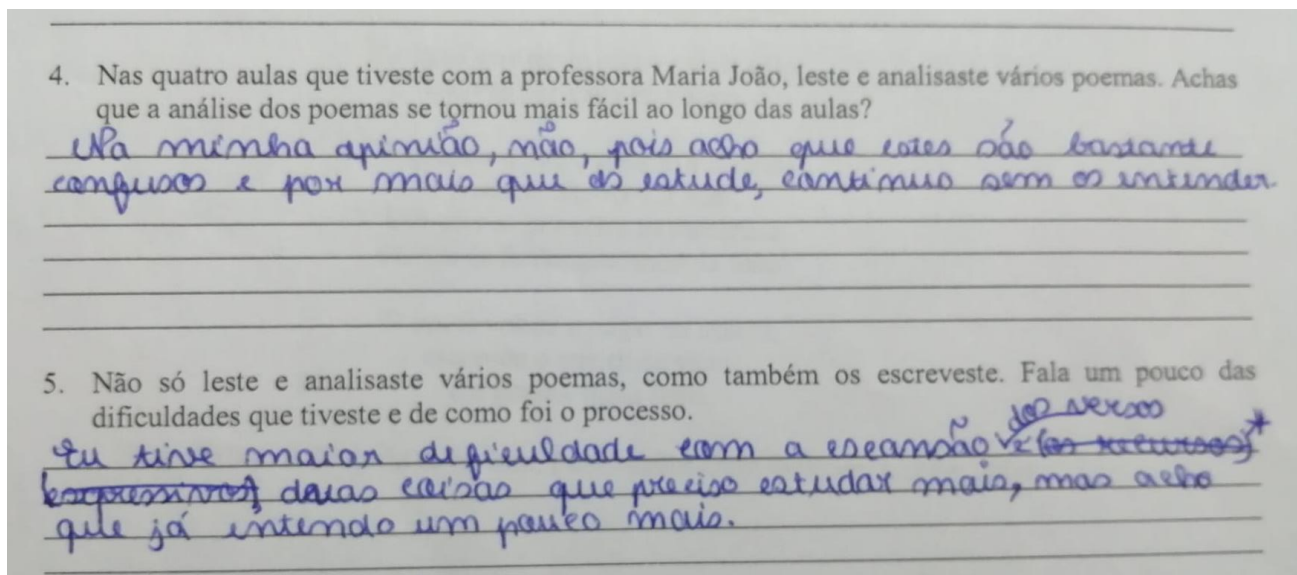 4. Nas quatro aulas que tiveste com a professora Maria João, leste e analisaste vários poemas. Achas
que a análise dos poemas se tornou mais fácil ao longo das aulas?
Na minha opinião, não, pois acho que estes são bastante
confusos e por mais que os estude, continuo sem os intender.
5. Não só leste e analisaste vários poemas, como também os escreveste. Fala um pouco das
dificuldades que tiveste e de como foi o processo.
dos versos
Eu tive maior dificuldade com a escansão e (os recursos)*
(expressivos) duas coisas que preciso estudar mais, mas acho
que já intendo um pouco mais.